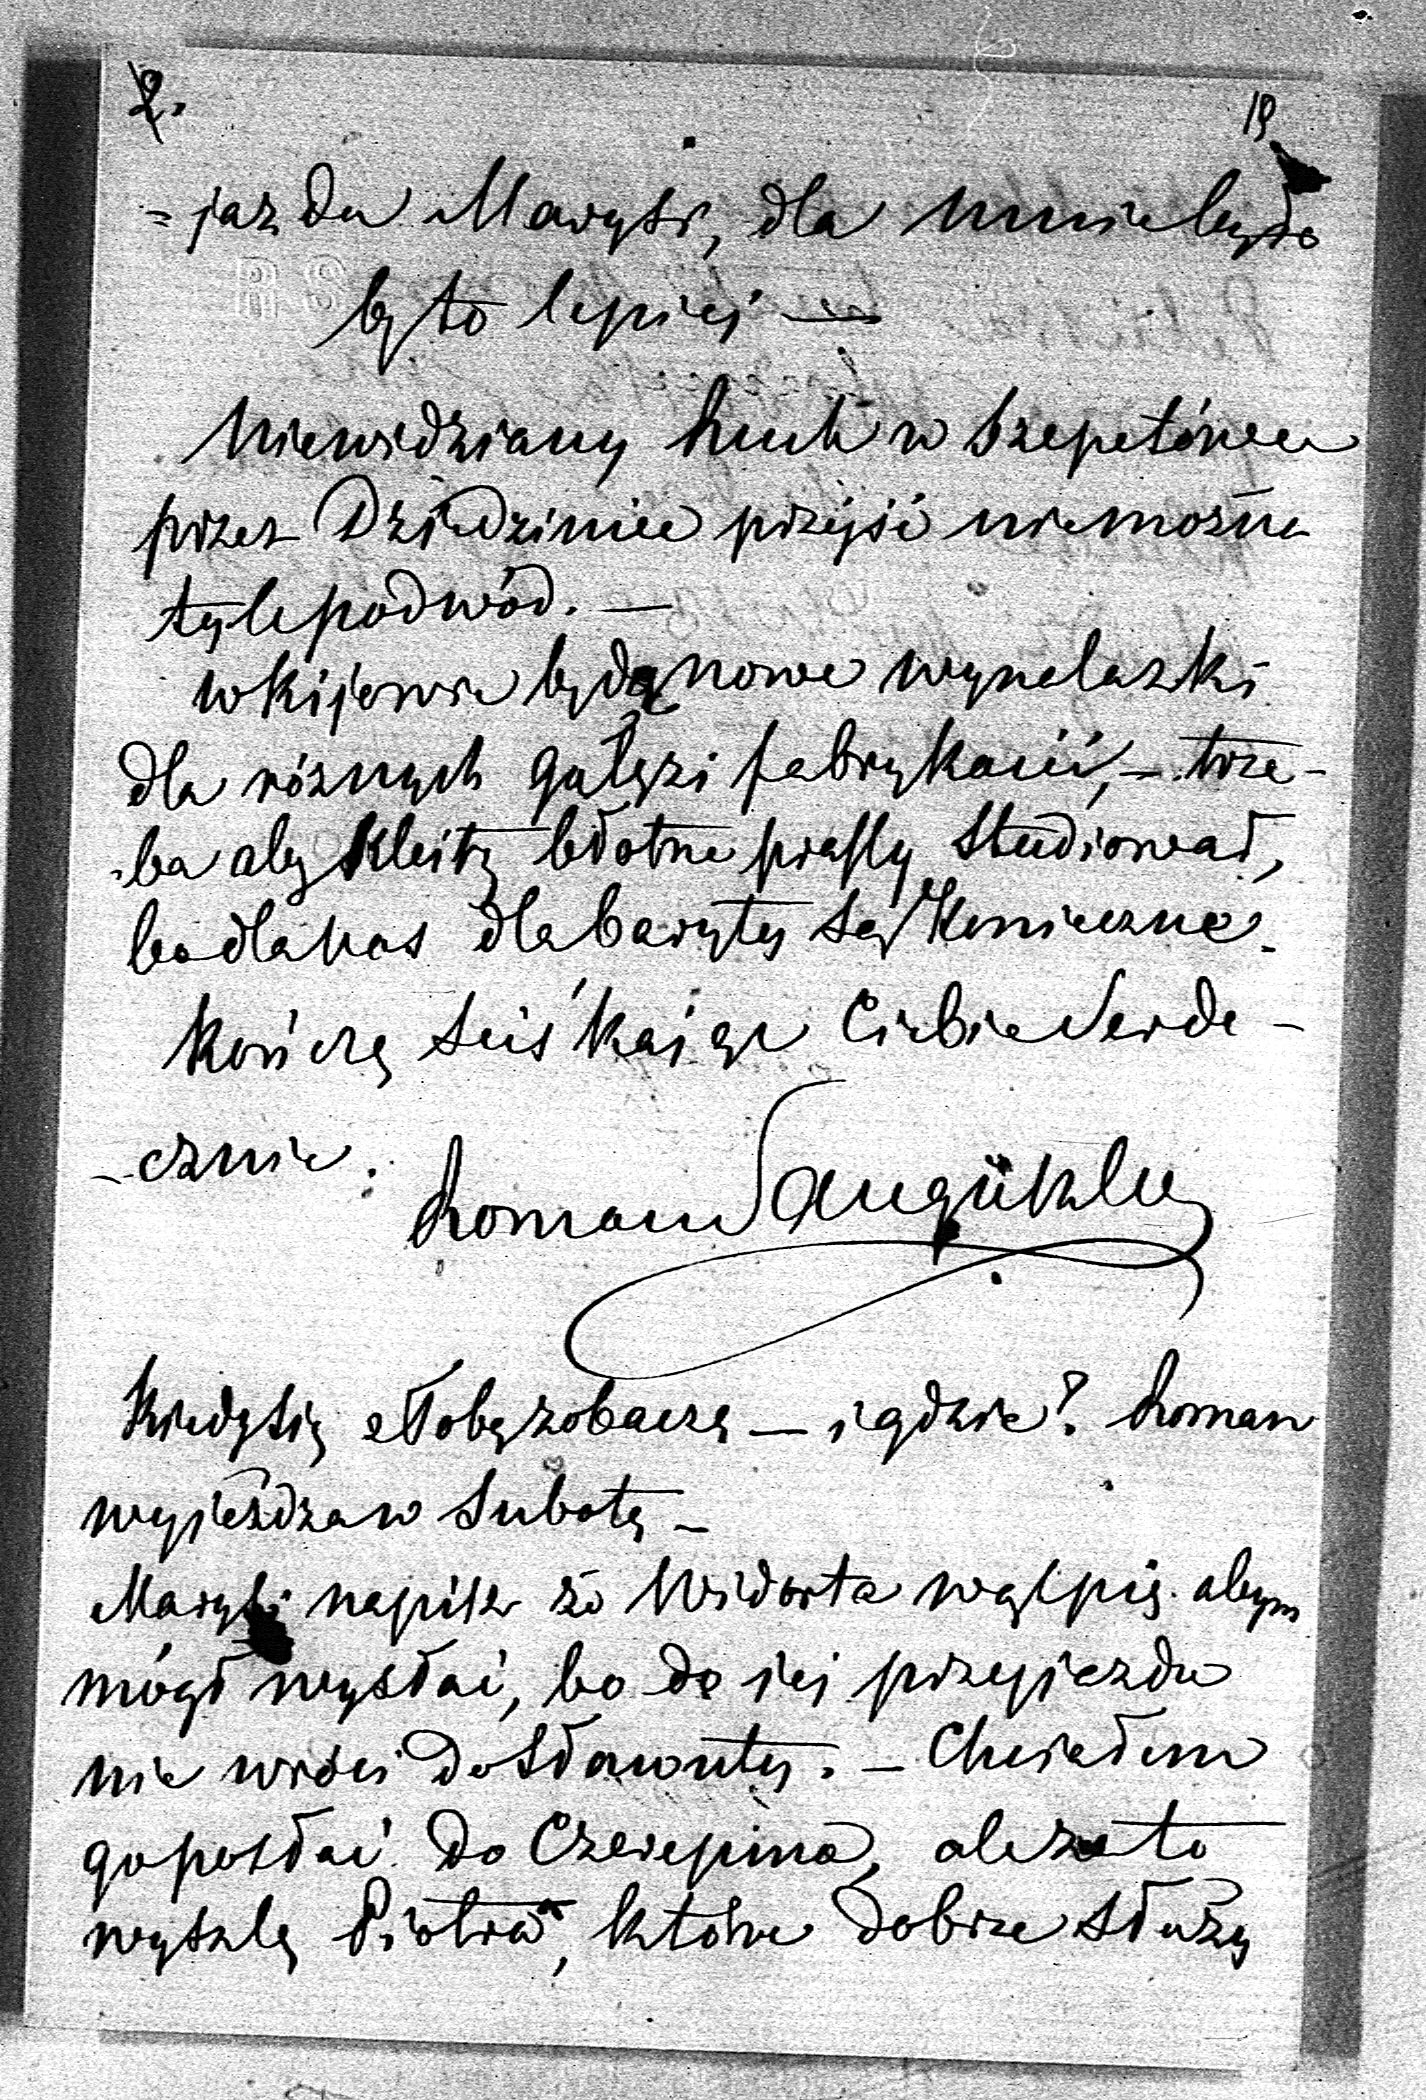 2.
19
= jazdu Marysi, dla mnie było
by to lepiej —
Niewidziany Ruch w Szepetówce
przez Dziedziniec przejść niemożna
tyle podwód. —
w Kijowie będą nowe wynalazki
dla różnych gałęzi fabrykacii, — trze-
-ba aby Kleitz błotne studiował,
bo dla nas dla Baryty są Konieczne.
Kończę Sciskając Ciebie Serde-
-cznie.
Roman Sanguszko
Kiedy się z Tobą zobaczę — i gdzie? Roman
wyjeżdza w Subotę —
Marysi napisz że Widorta wątpię abym
mógł wysłać, bo do jej przyjazdu
nie wróci do Sławuty. — Chciałem
go posłać do Czerepina, ale za to
wyszlę Piotra, który dobrze służy